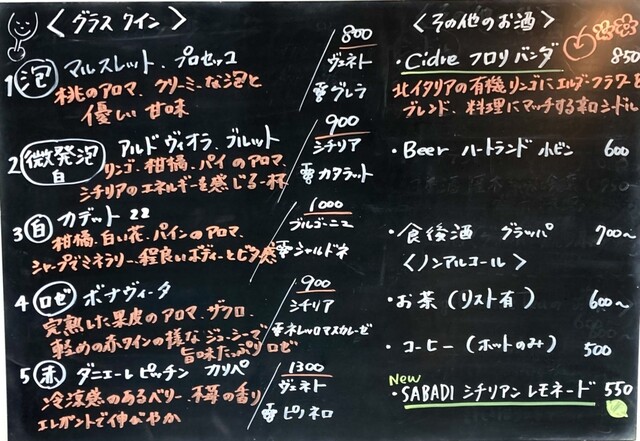 〈グラスワイン〉
1 泡 マルスレット、プロセッコ
桃のアロマ、クリーミーな泡と
優しい甘味
800
ヴェネト
グレラ
2 微発泡 白 アルドヴィオラ、ブルット
リンゴ、柑橘、パインのアロマ、
シチリアのエネルギーを感じる一杯
900
シチリア
カタラット
3 白 カデット 22
柑橘、白い花、パインのアロマ、
シャープでミネラリー、程良いボディーとビタ感
1000
ブルゴーニュ
シャルドネ
4 ロゼ ボナヴィータ
完熟した果皮のアロマ、ザクロ、
軽めの赤ワインの様なジューシーで
旨味たっぷりロゼ
900
シチリア
ネレッロマスカレーゼ
5 赤 ダニエーレピッチニン カリペ
冷涼感のあるベリー、の香り
エレガントで伸びやか
1300
ヴェネト
ピノネロ
〈その他のお酒〉
・Cidre フロリバンダ 850
北イタリアの有機リンゴにエルダーフラワーを
ブレンド、料理にマッチする辛口シードル
・Beer ハートランド小ビン 600
・食後酒 グラッパ 700〜
〈ノンアルコール〉
・お茶(リスト有) 600〜
・コーヒー(ホットのみ) 500
New
・SABADI シチリアンレモネード 550